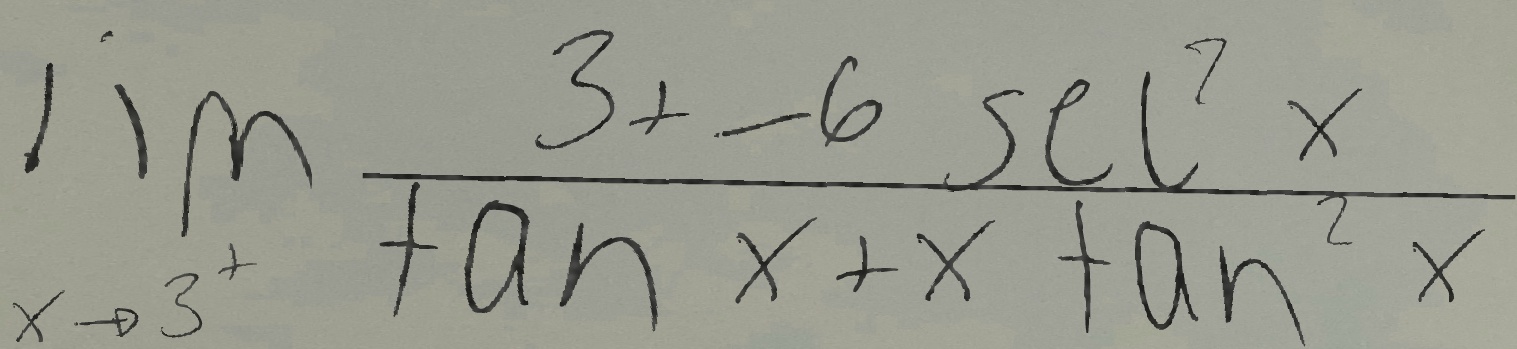 lim_{x→3^+} \frac{3 + -6 sec^2 x}{tan x + x tan^2 x}